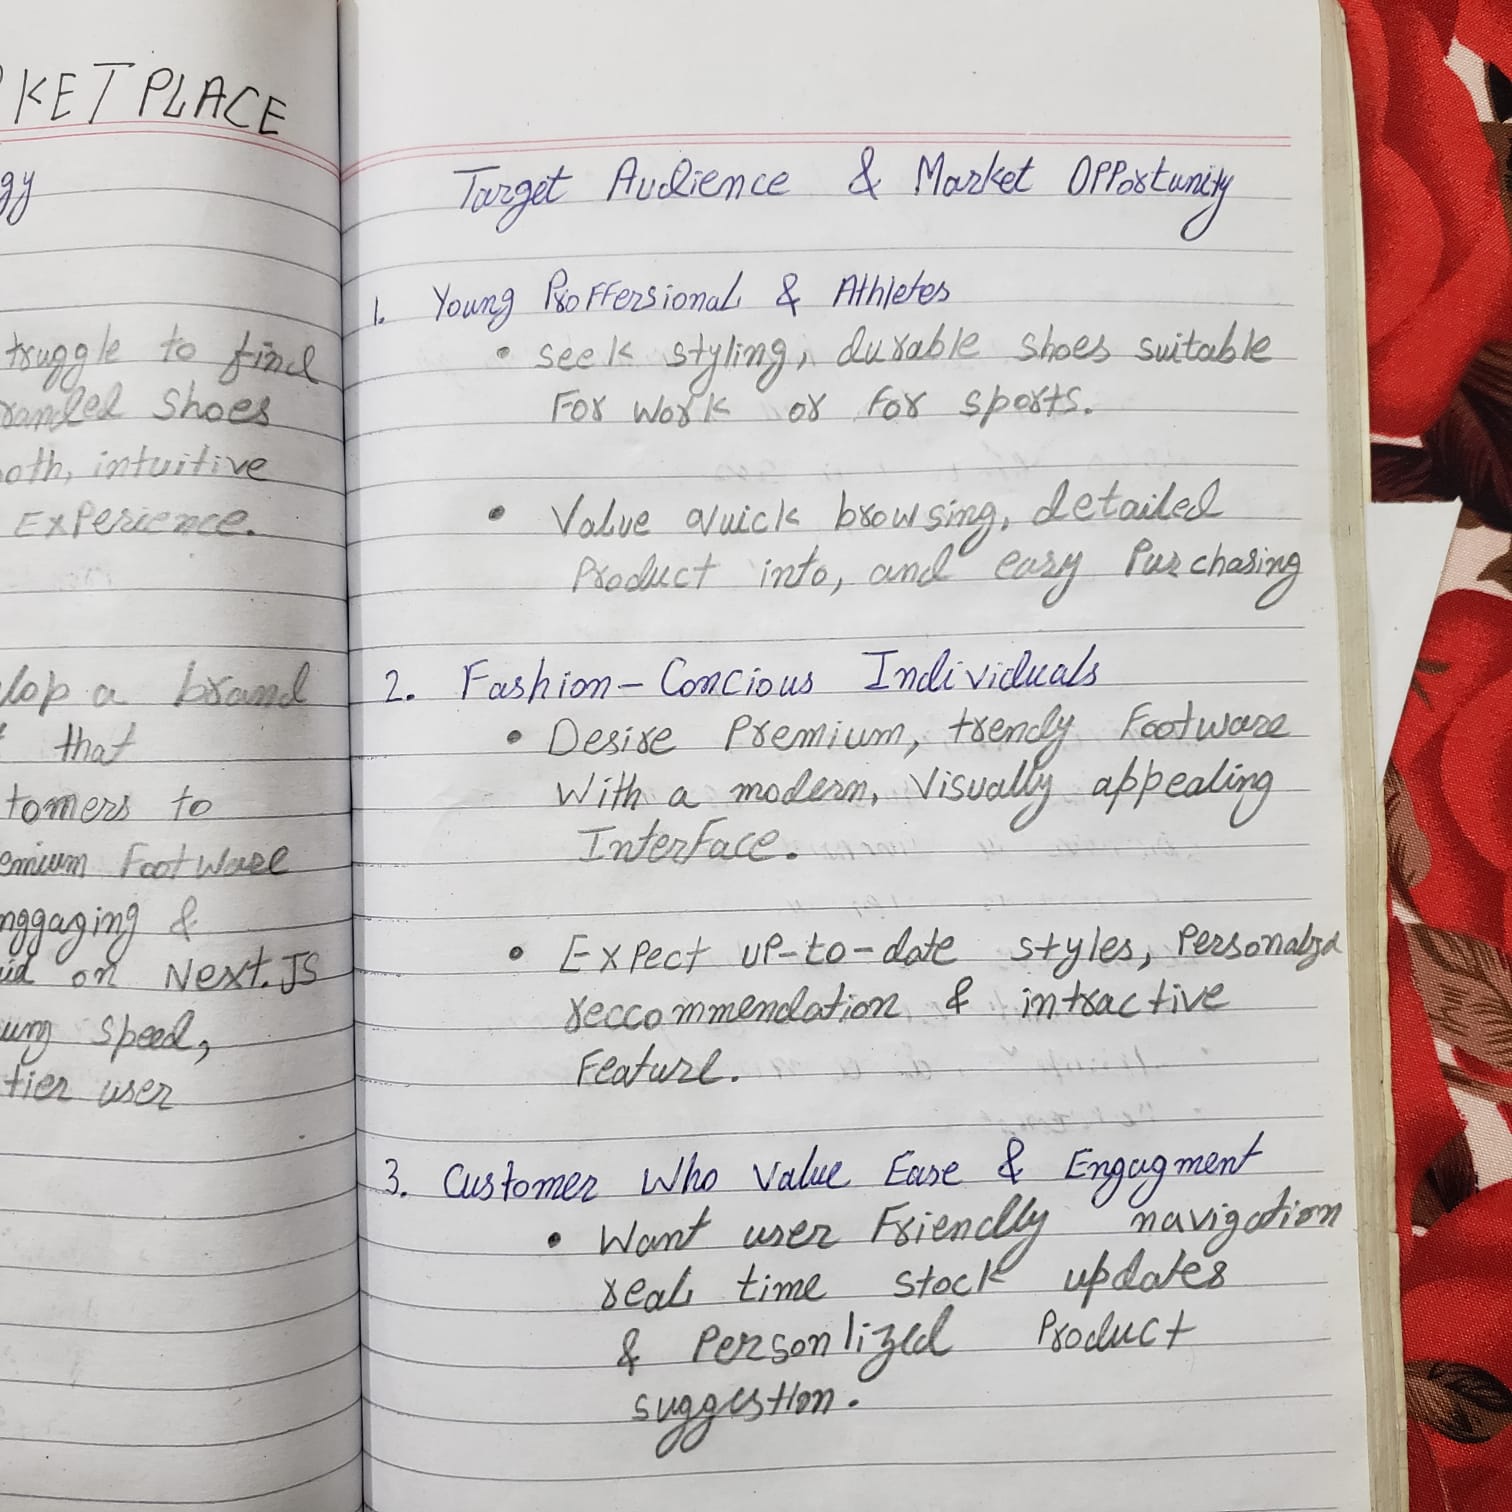 KETPLACE
gy
truggle to find
randed Shoes
oth, intuitive
Experience.
lop a brand
that
tomers to
emium FootWare
nggaging &
on Next.JS
speed,
tier user
Target Audience & Market Opportunity
1. Young Proffersional & Athletes
• seek styling, durable shoes suitable
For work or for sports.
• Value quick browsing, detailed
Product into, and easy Purchasing
2. Fashion-Concious Individuals
• Desire Premium, trendy Footware
With a modern, Visually appealing
Interface.
• Expect up-to-date styles, Personalzd
reccommendation & intractive
Feature.
3. Customer Who Value Ease & Engagment
• Want user Friendly navigation
real time stock updates
& Personlized Product
suggestion.